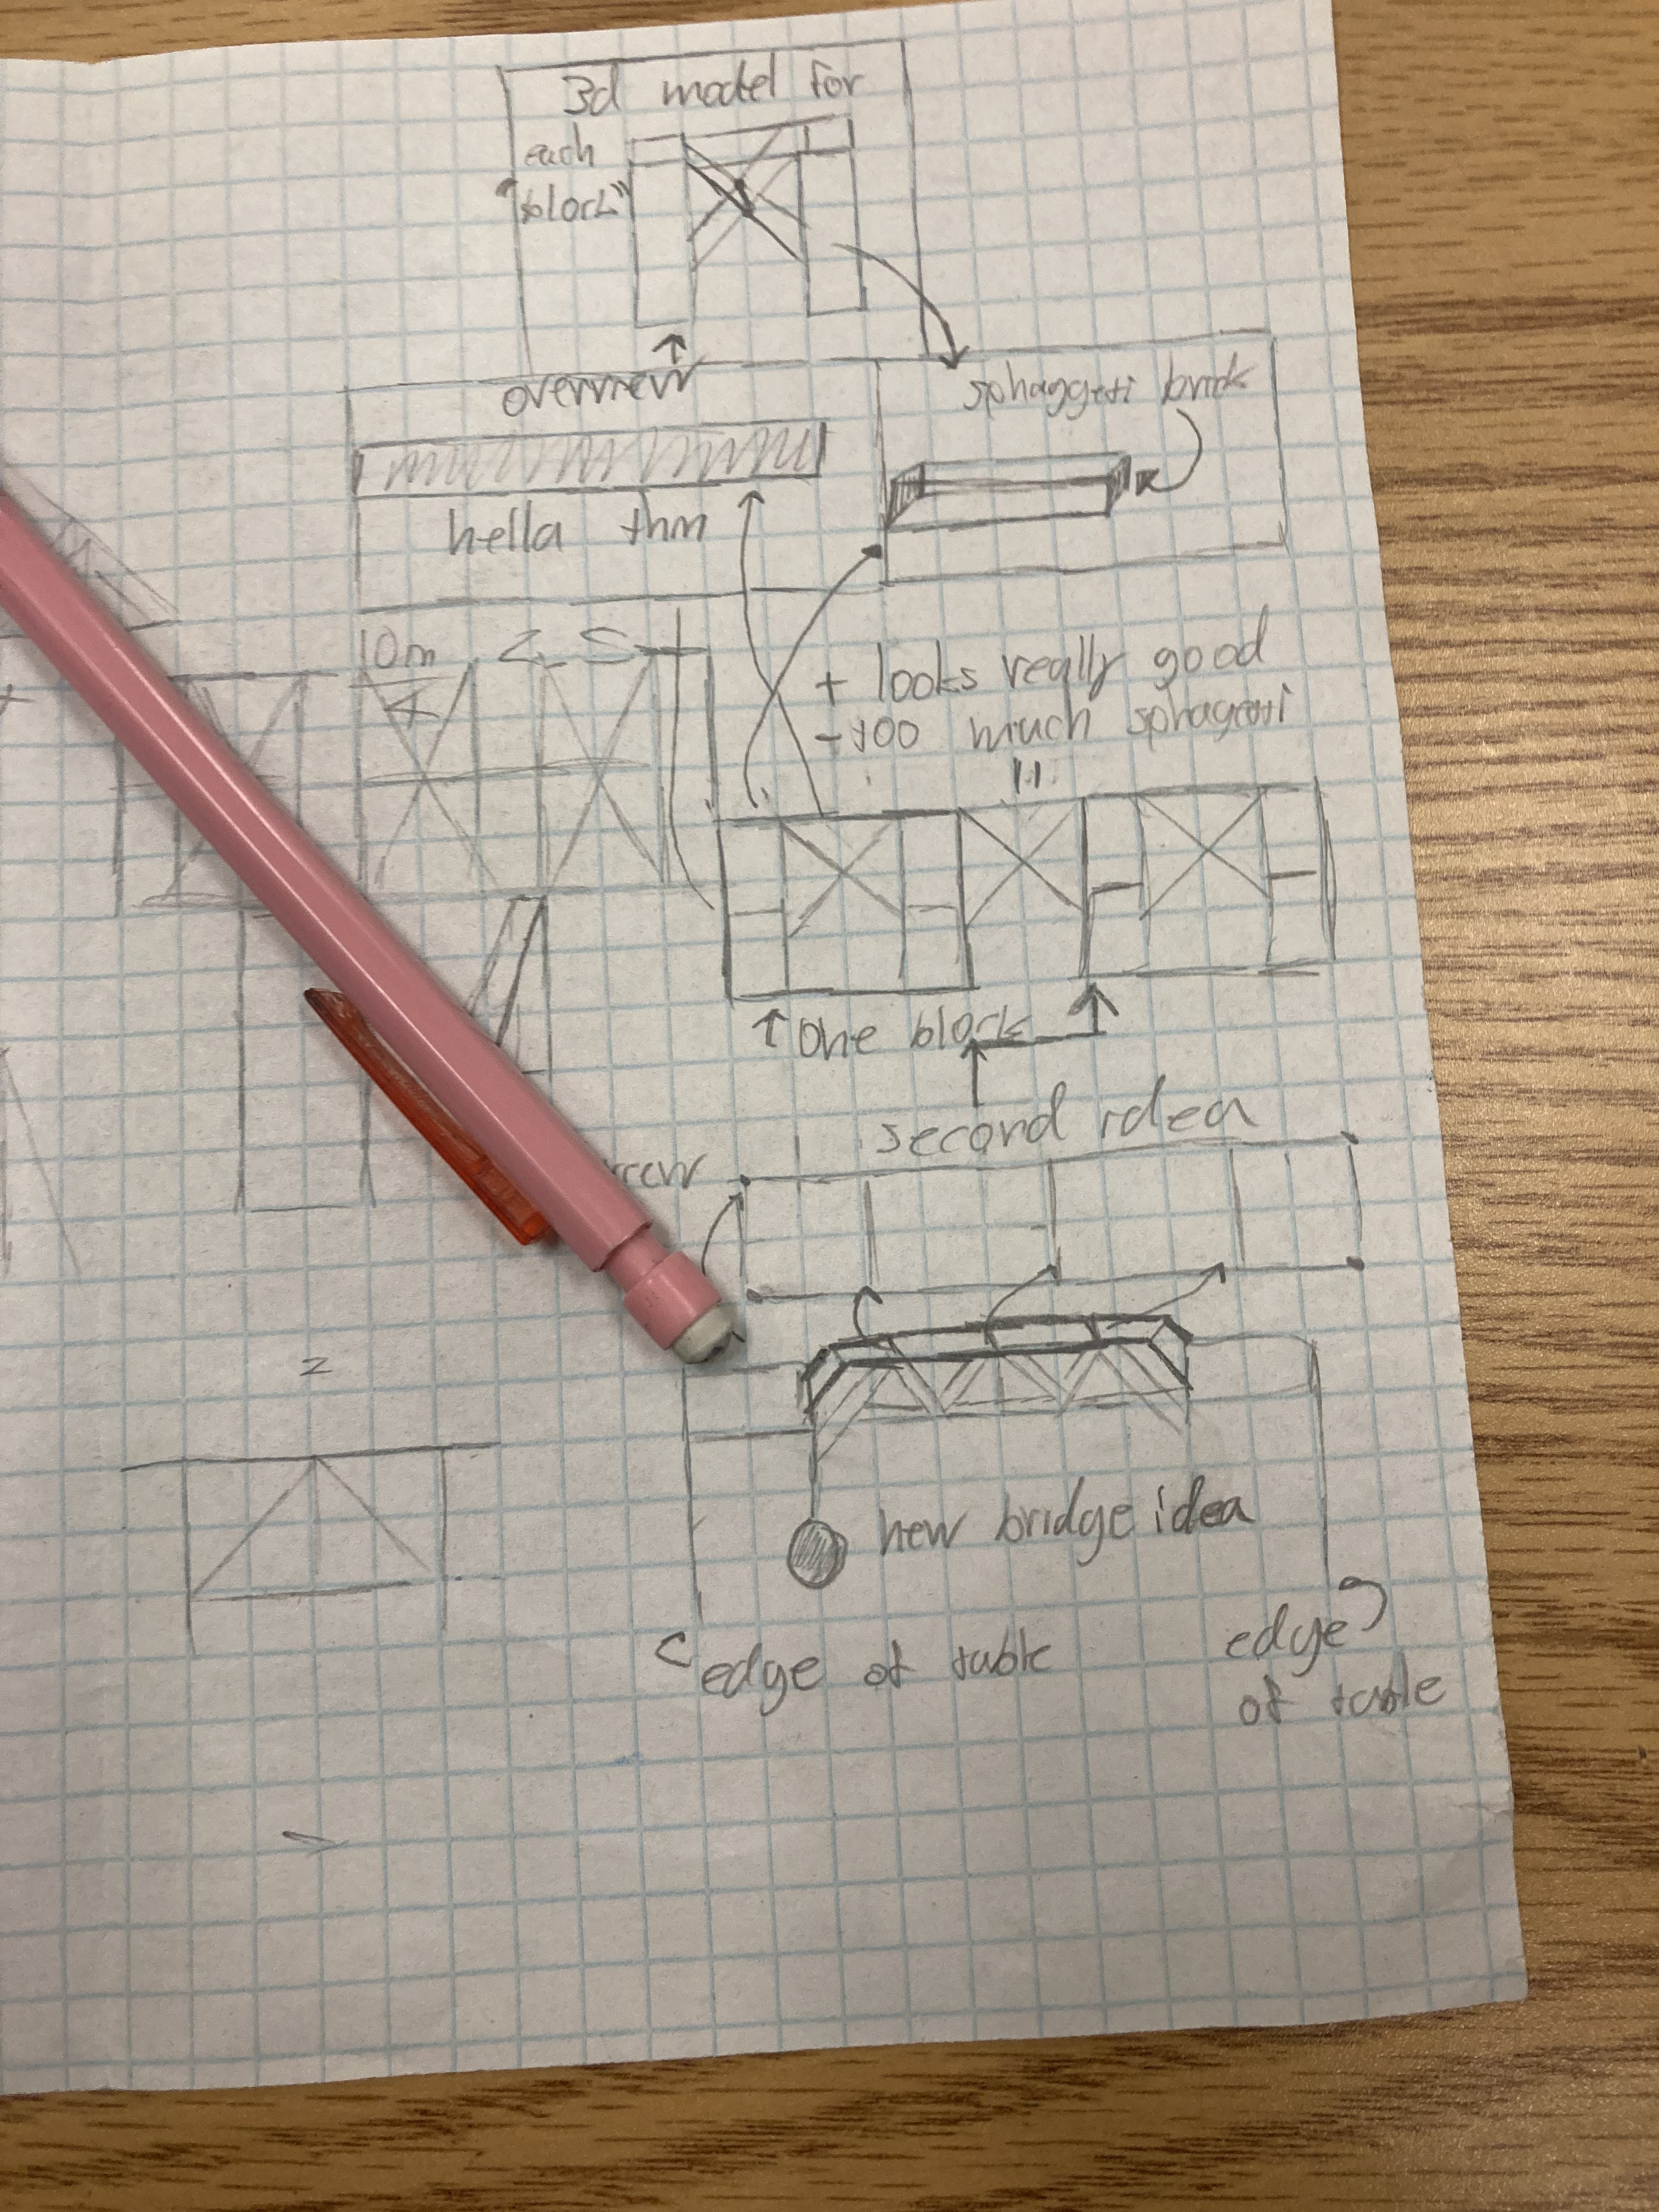 3d model for
each
"block"
overview
sphaggeti brick
hella thin
10m
4
2.5
+ looks really good
- too much sphagetti
↑ One block
second idea
new bridge idea
edge of table
edge
of table
2